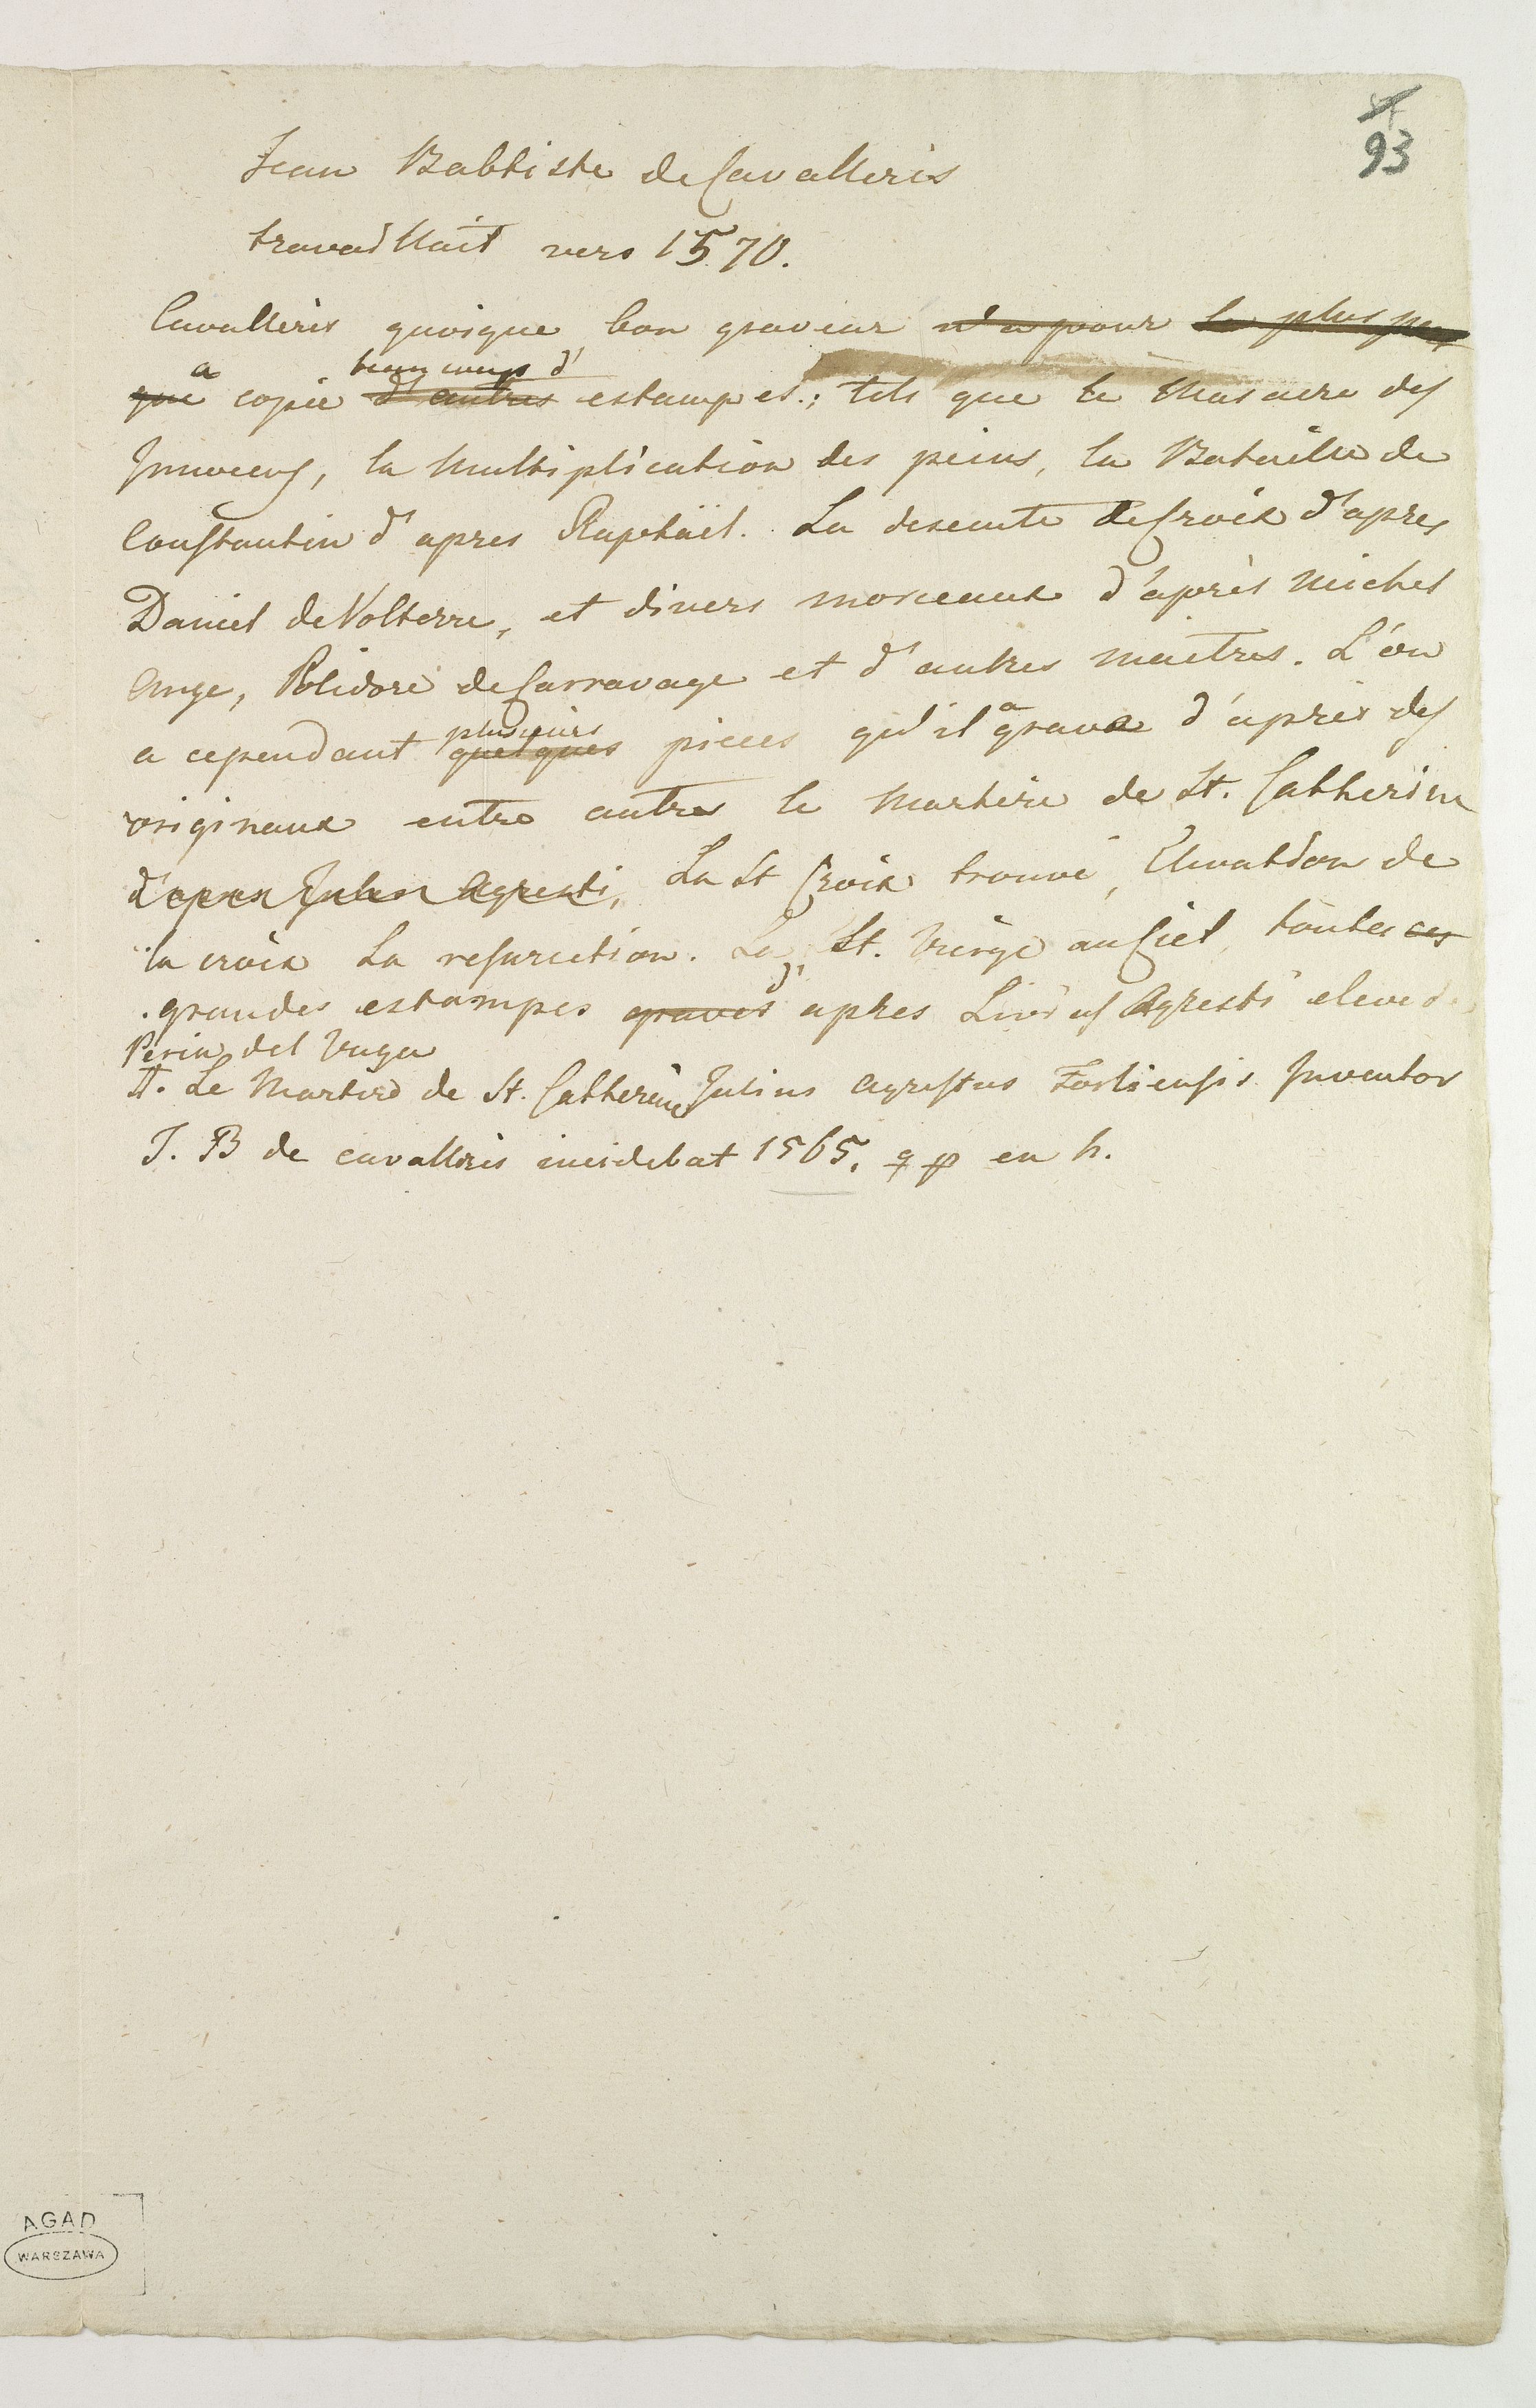 93
Jean Babtiste de Cavalleris
travaillait vers 1570.
Cavalleris quoique bon graveur n'a pour le plus part
que a copié d'autres beaucoup d' estampes.; tels que le Masacre des
Innocens, la Multiplication des peins, la Bataille de
Constantin d'apres Raphaël. La descente de Croix d'apres
Daniel de Volterre, et divers morceaux d'après Michel
Ange, Polidore de Carravage et d'autres maitres. L'on
a cependant quelques plusieurs pieces qu'il a grava d'après des
originaux entre autres le Martire de St. Catherine
d'apres Jules Agresti, La St Croix trouvé, Elevation de
la croix La resurection. La St. Vierge au Ciel, toutes ces
grandes estampes gravés d'apres Livius Agresti eleve de
Perin del Vaga
#. Le Martire de St. Catherine Julius Agrestus Forliensis Inventor
J. B de cavalleris incidebat 1565. g p en h.
AGAD
WARSZAWA